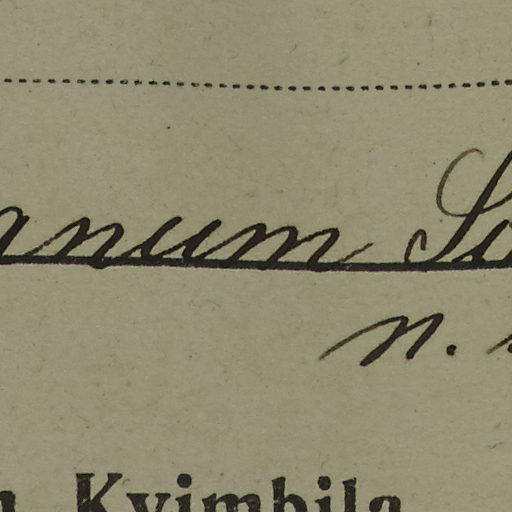 anum So
n.
Kyimbila